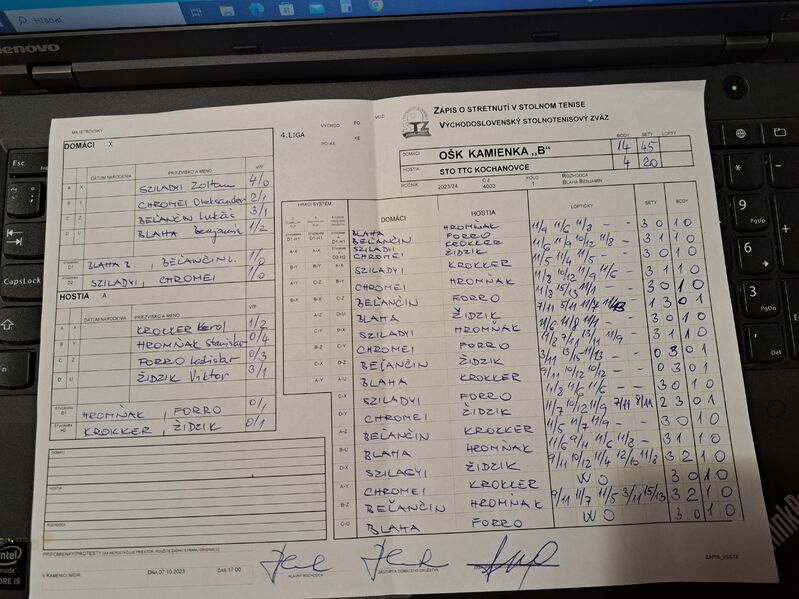 Hľadať
lenovo
ZÁPIS O STRETNUTÍ V STOLNOM TENISE
VÝCHODOSLOVENSKÝ STOLNOTENISOVÝ ZVÄZ
MAJSTROVSKÝ
4.LIGA
VÝCHOD
PO-KE
MUŽI
DOMÁCI X
DOMÁCI OŠK KAMIENKA „B"
HOSTIA STO TTC KOCHANOVCE
BODY SETY LOPTY
14 45
4 20
ROČNÍK 2023/24 Č.Z. 4003 KOLO 1 ROZHODCA BLAHA BENJAMIN
DÁTUM NARODENIA PRIEZVISKO A MENO V/P
A X SZILADYI Zoltan 4/0
B Y CHROMEI Oleksander 2/1
C Z BEĽANČIN Lukáš 3/1
D U BLAHA Benjamin 1/2
D1 BLAHA B., BEĽANČIN L. 1/0
D2 SZILADYI, CHROMEI 1/0
HOSTIA A
DÁTUM NARODENIA PRIEZVISKO A MENO V/P
A X KROKKER Karol 1/2
B Y HROMŇAK Stanislav 0/4
C Z FORRO Ladislav 0/3
D U ŽIDZIK Viktor 3/1
D1 HROMŇAK, FORRO 0/1
H2 KROKKER, ŽIDZIK 0/1
HRACÍ SYSTÉM DOMÁCI HOSTIA LOPTIČKY SETY BODY
BLAHA HROMŇAK
BEĽANČIN FORRO 11/9 11/6 11/8 - - 3 0 1 0
SZILADYI KROKKER
CHROMEI ŽIDZIK 11/6 11/9 10/12 11/8 - 3 1 1 0
SZILADYI KROKKER 11/5 11/4 11/5 - - 3 0 1 0
CHROMEI HROMŇAK 11/8 10/12 11/9 11/6 - 3 1 1 0
BEĽANČIN FORRO 11/8 15/13 11/1 - - 3 0 1 0
BLAHA ŽIDZIK 7/11 5/11 11/8 11/13 - 1 3 0 1
SZILADYI HROMŇAK 11/6 11/8 11/1 - - 3 0 1 0
CHROMEI FORRO 11/8 7/11 13/11 11/9 - 3 1 1 0
BEĽANČIN ŽIDZIK 3/11 13/15 11/13 - - 0 3 0 1
BLAHA KROKKER 9/11 10/12 10/12 - - 0 3 0 1
SZILADYI FORRO 11/8 11/6 11/6 - - 3 0 1 0
CHROMEI ŽIDZIK 11/7 10/12 11/9 7/11 8/11 2 3 0 1
BEĽANČIN KROKKER 11/5 11/7 11/9 - - 3 0 1 0
BLAHA HROMŇAK 11/6 9/11 11/6 11/8 - 3 1 1 0
SZILAGYI ŽIDZIK 9/11 10/12 11/4 12/10 11/8 3 2 1 0
CHROMEI KROKKER WO 3 0 1 0
BEĽANČIN HROMŇAK 9/11 11/7 11/5 3/11 15/13 3 2 1 0
BLAHA FORRO WO 3 0 1 0
DOMÁCI
HOSTIA
ROZHODCA
PRIPOMIENKY/PROTESTY (AK NEPOSTAČUJE PRIESTOR, POUŽITE ZADNÚ STRANU ORIGINÁLU)
V KAMIENCI NIŽ.BR. DŇA 07.10.2023 ČAS 17:00
HLAVNÝ ROZHODCA
ZÁSTUPCA DOMÁCEHO DRUŽSTVA
ZÁPIS_VSSTZ